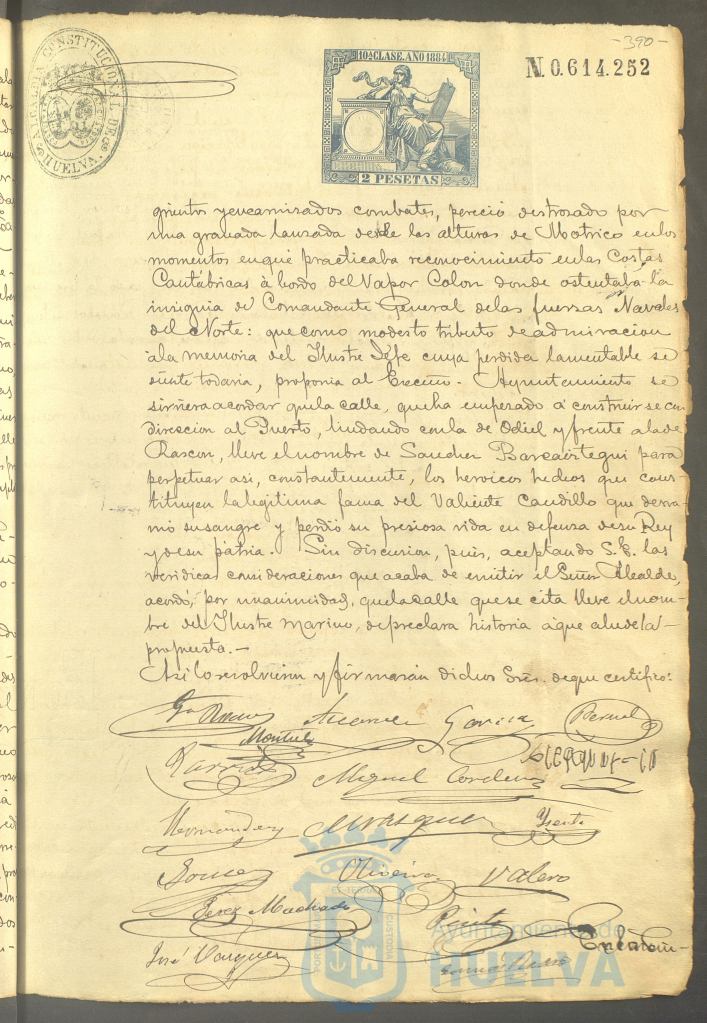 -390-
ALCALDIA CONSTITUCIONAL DE HUELVA.
10ª CLASE. AÑO 1884
2 PESETAS
N. 0.614.252
grientos y encarnizados combates, pereció destrozado por
una granada lanzada desde las alturas de Motrico en los
momentos en que practicaba reconocimiento en las Costas
Cantábricas à bordo del Vapor Colon donde ostentaba la
insignia de Comandante General de las fuerzas Navales
del Norte: que como modesto tributo de admiracion
a la memoria del Ilustre Jefe cuya perdida lamentable se
siente todavia, proponia al Excmo. Ayuntamiento se
sirviera acordar que la calle, que ha empesado á construirse con
direccion al Puerto, lindando con la de Odiel y frente a la de
Rascon, lleve el nombre de Sanchez Barcaiztegui para
perpetuar asi, constantemente, los heroicos hechos que cons-
tituyen la legitima fama del Valiente Caudillo que derra-
mó su sangre y perdió su presiosa vida en defensa de su Rey
y de su pátria. Sin discusion, pues, aceptando S.E. las
veridicas consideraciones que acaba de emitir el Señor Alcalde,
acordó, por unanimidad, que la calle que se cita lleve el nom-
bre del Ilustre Marino, de preclara historia à que alude la
propuesta.-
Asi lo resolvieron y firmarán dichos Sres. de que certifico:
Garcia
Bernal
Montiel
Miguel Cordero
Hernandez
Vazquez
Oliveira
Valero
Perez Machado
Pinto
José Vazquez
PORTUS MARIS ET TERRAE CUSTODIA
Ayuntamiento de
HUELVA